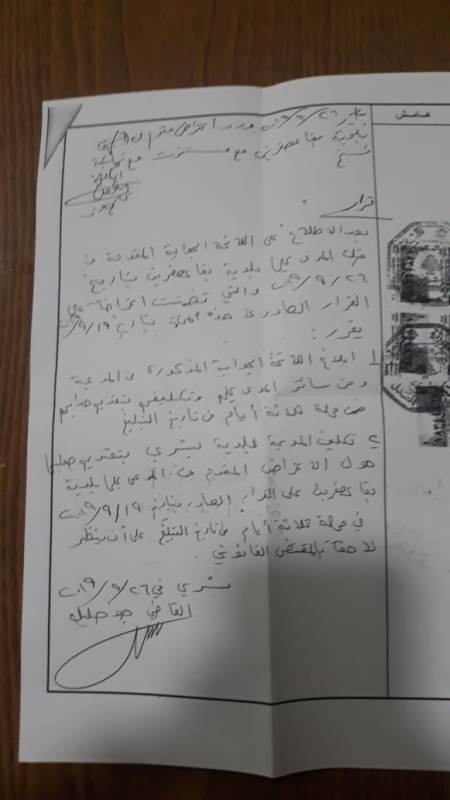 هامش
بتاريخ ٢٦/٩/٢٠١٩ ورد اعتراض مقدم من
بلدية بقاعصفرين مع مستندات مع
قرار
بعد الاطلاع على اللائحة الجوابية المقدمة من
قبل المدعى عليها بلدية بقاعصفرين بتاريخ
٢٦/٩/٢٠١٩ والتي تضمنت اعتراضاً على
القرار الصادر عن هذه المحكمة بتاريخ ١٩/٩/٢٠١٩
يقرر :
١ ابلاغ اللائحة الجوابية المذكورة من المدعية
ومن سائر المدعى عليهم وتكليفهم بتقديم جوابهم
ضمن مهلة ثلاثة أيام من تاريخ التبليغ
٢ تكليف المدعية بلدية بشري بتقديم جوابها
حول الاعتراض المقدم من المدعى عليها بلدية
بقاعصفرين على القرار الصادر بتاريخ ١٩/٩/٢٠١٩
في مهلة ثلاثة أيام من تاريخ التبليغ على أن ينظر
لاحقاً بالمقتضى القانوني .
بشري في ٢٦/٩/٢٠١٩
القاضي جو خليل